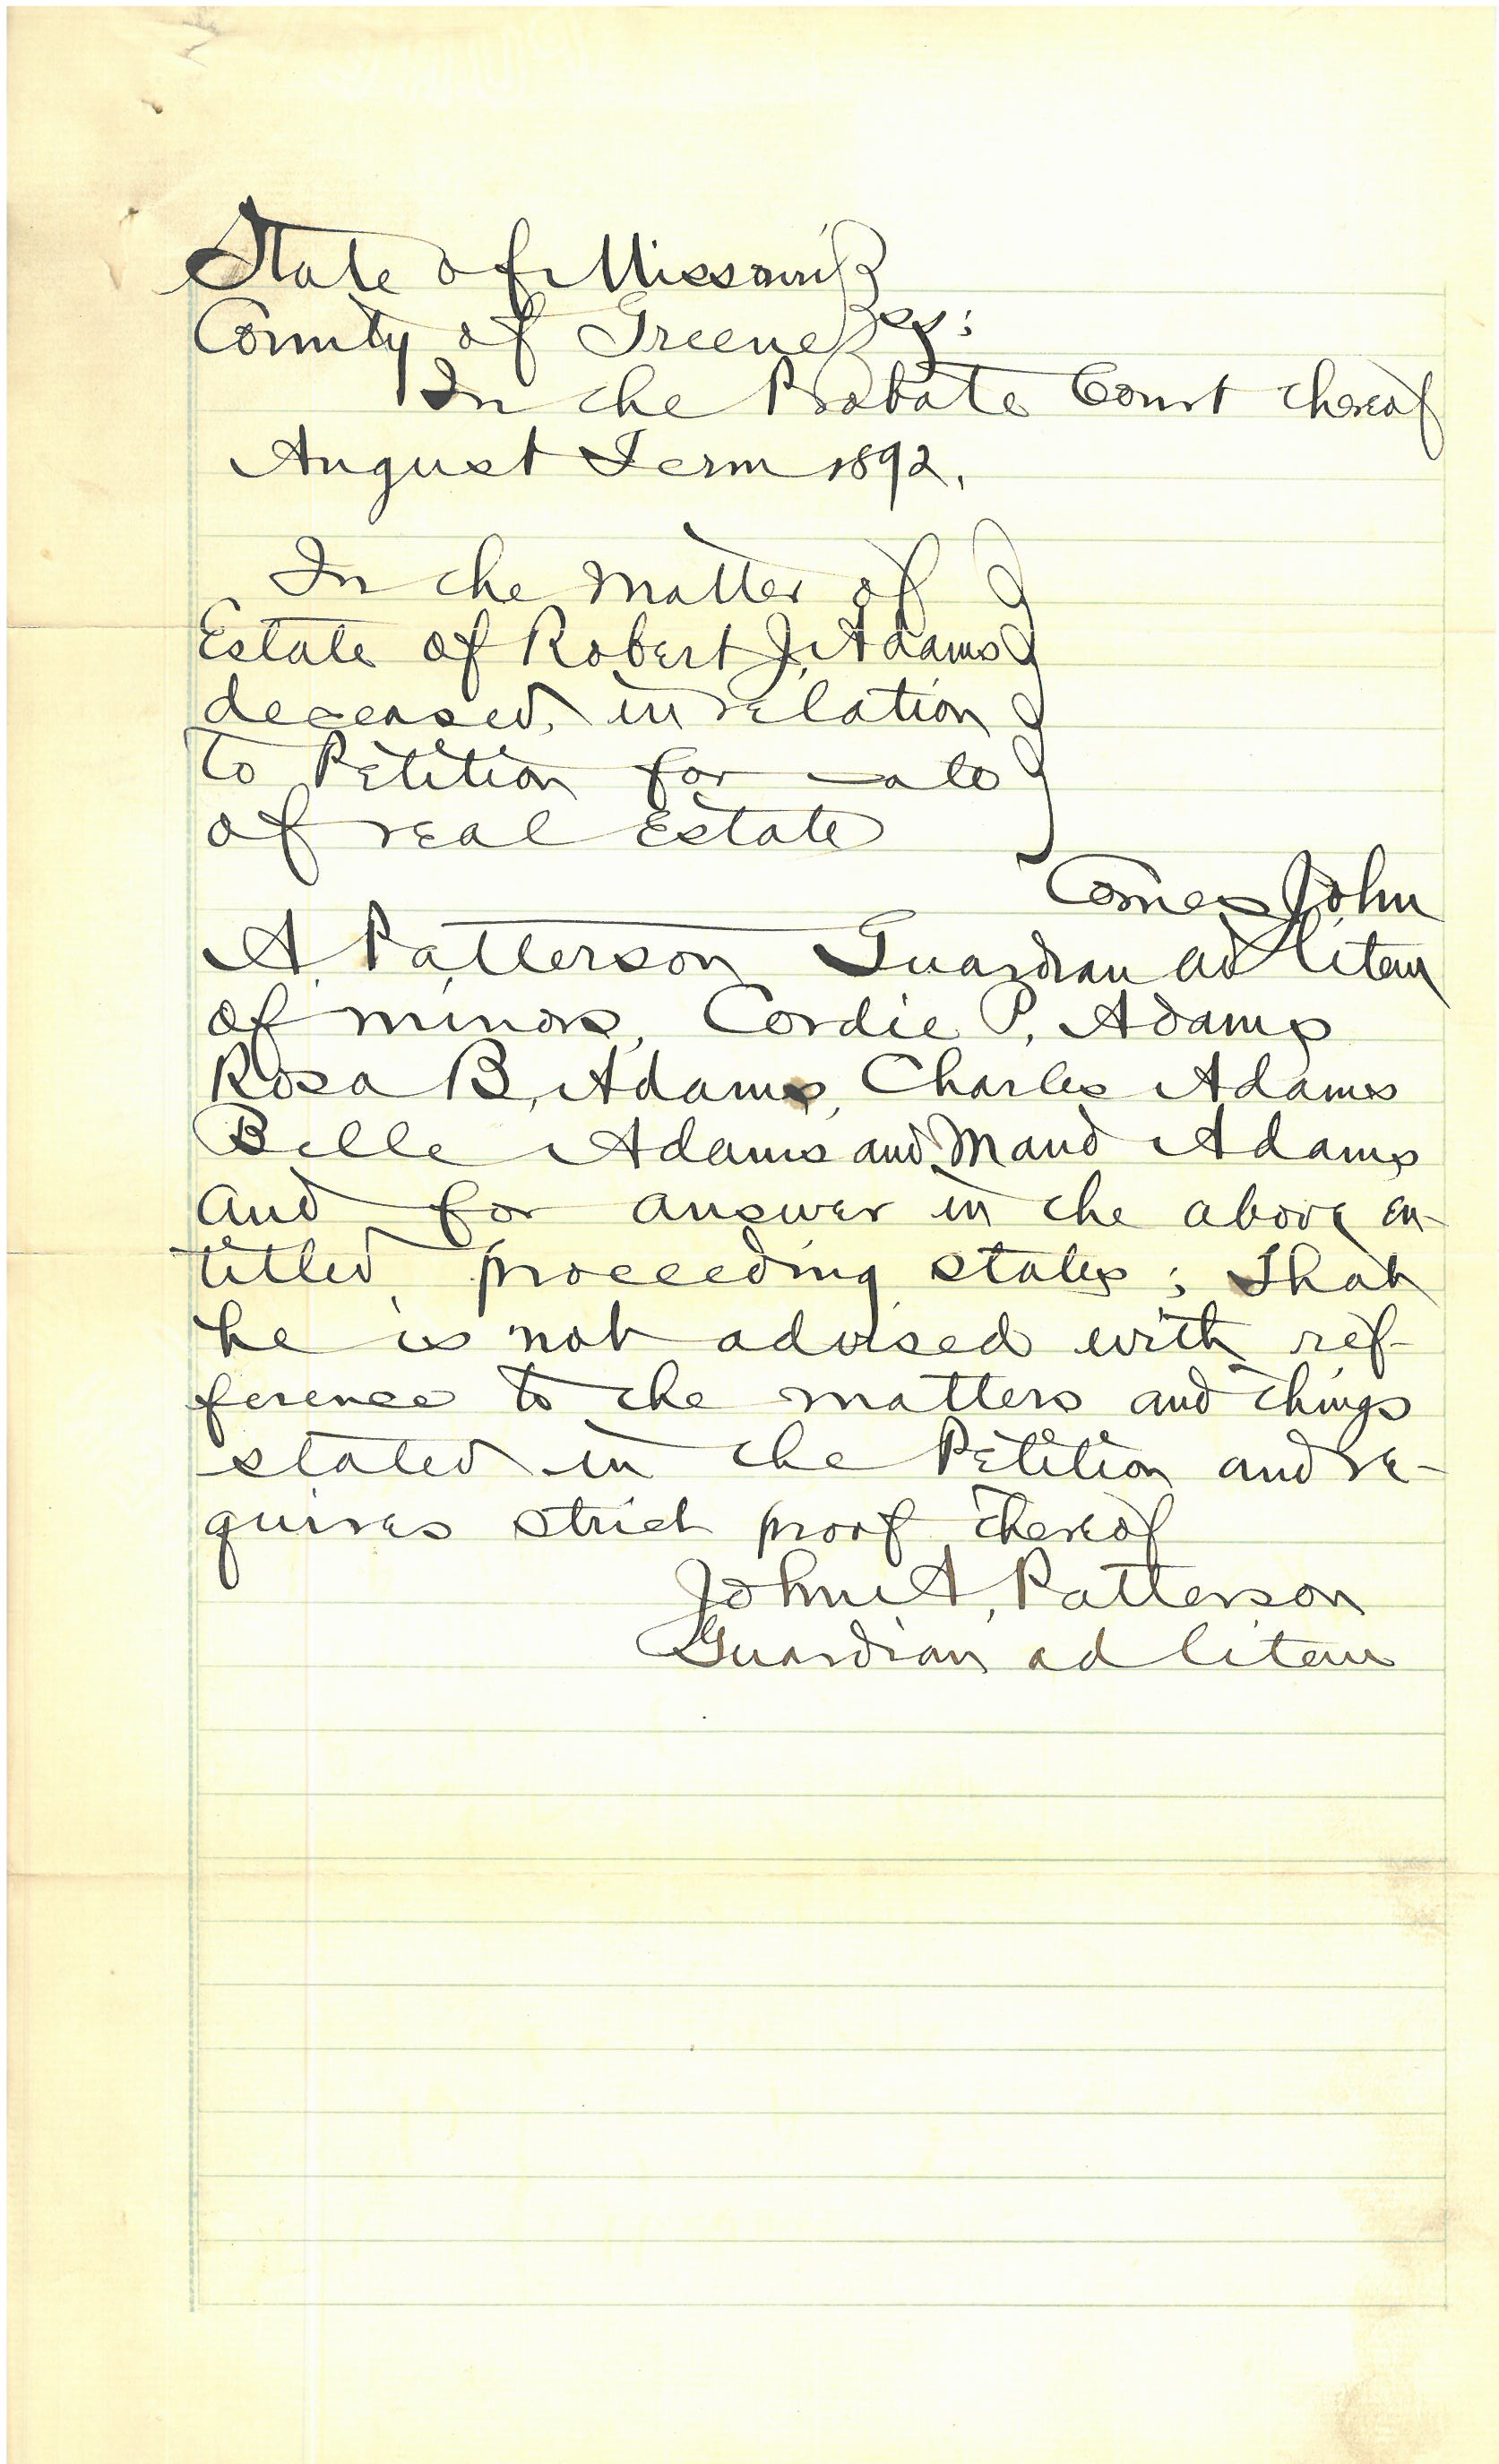 State of Missouri }
County of Greene } ss:
In the Probate Court thereof
August Term 1892.
In the matter of
Estate of Robert J. Adams
deceased, in relation
to Petition for sale
of real Estate
Comes John
A. Patterson Guardian ad litem
of minors, Cordie P. Adams
Rosa B. Adams, Charles Adams
Belle Adams and Maud Adams
and for answer in the above en-
titled proceeding states; That
he is not advised with ref-
ference to the matters and things
stated in the Petition and re-
quires strict proof thereof
John A. Patterson
Guardian ad litem